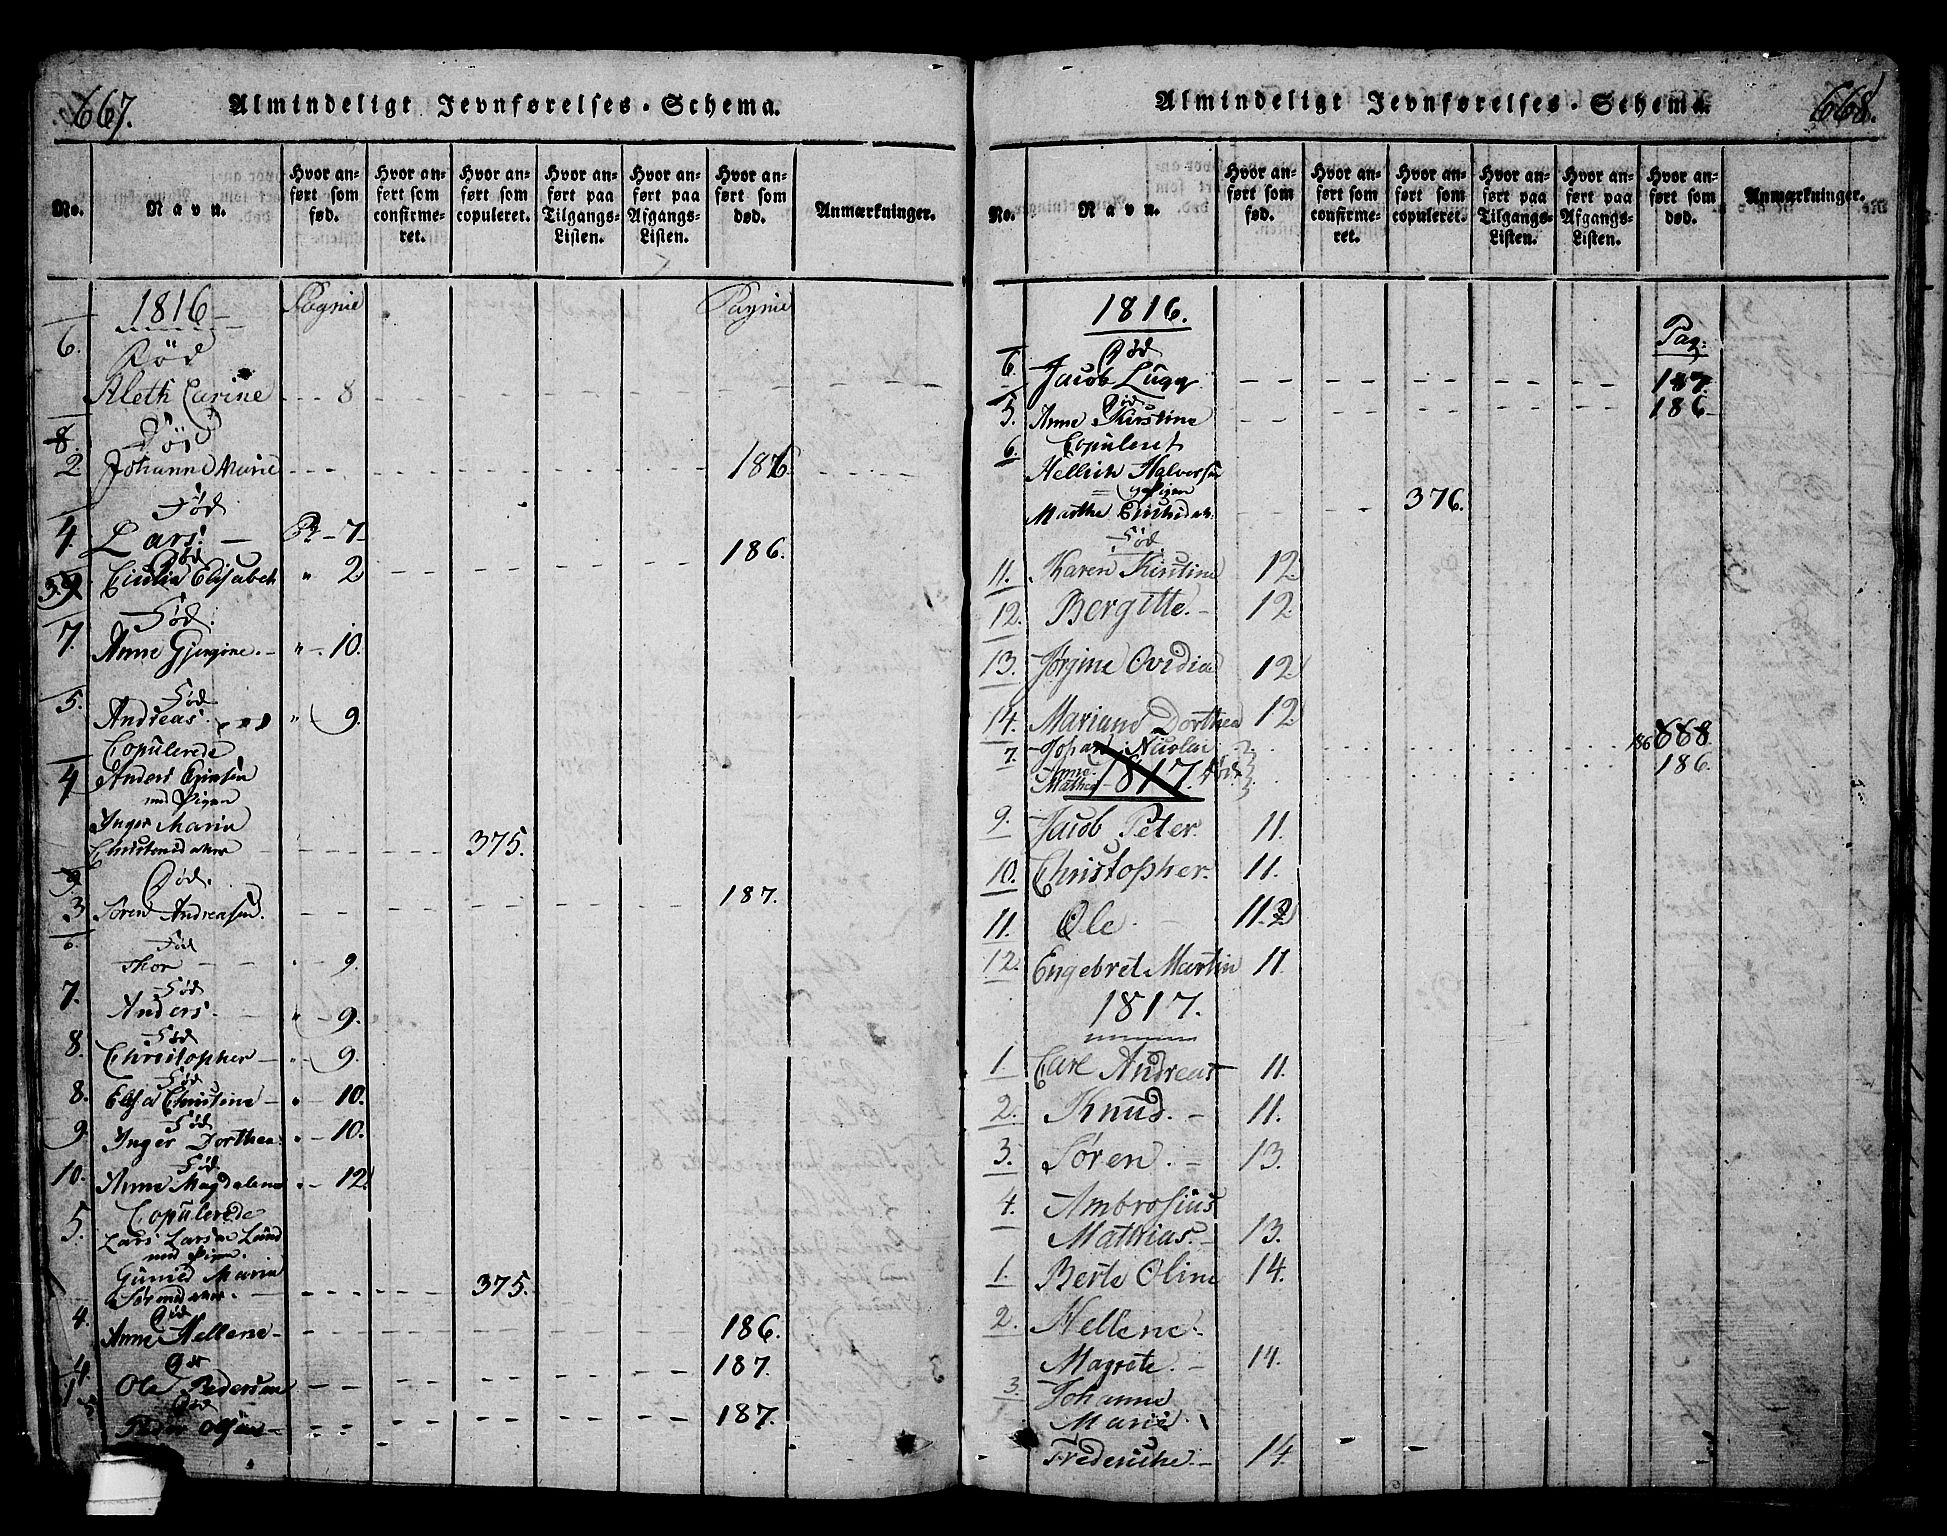 667.
Almindeligt Jevnførelses-Schema.
No.
Navn.
Hvor anført som fød.
Hvor anført som confirmeret.
Hvor anført som copuleret.
Hvor anført paa Tilgangs-Listen.
Hvor anført paa Afgangs-Listen.
Hvor anført som død.
Anmærkninger.
1816 Pagnie Pagnie
6. Død
Aleth Carine 8
8. Død
2 Johanne Marie 186
Fød
4. Lars. 7 186.
Død
39 Elisabeth " 2
Fød.
7. Anne Gjurgine. " 10.
Fød
5. Andreas. " 9.
Copulerede
4 Anders
med Pigen
Inger Maria
Christensdatter 375.
9. Død.
3. Søren Andreasen. 187.
6. Fød
Thor 9.
7. Fød
Anders. " 9.
Fød
8. Christopher " 9.
Fød
8. Elsa Christine " 10.
Fød
9. Inger Dorthea " 10.
Fød
10. Anne Magdalena " 12.
Copulerede
5. Lars Larsen Lund
med Pigen.
Gunild Maria
375.
Død
4. Anne Hellene 186.
4. Død
1 Ole Pedersen 187.
Død
5 Peder Olsen 187.
668.
Almindeligt Jevnførelses-Schema.
No.
Navn.
Hvor anført som fød.
Hvor anført som confirmeret.
Hvor anført som copuleret.
Hvor anført paa Tilgangs-Listen.
Hvor anført paa Afgangs-Listen.
Hvor anført som død.
Anmærkninger.
1816.
Pag:
Død
6. Jacob Lugg 187.
Død
5. Anne Kirstine 186
6. Copuleret
Hellich Halvorsen
Pigen
Marthe 376.
Fød
11. Karen Kirstine 12.
12. Bergitte. 12.
13. Jørgine Ovidia 12.
14. Mariane Dorthea 12.
7. Johan Nicolai 186 688
Anne Mathea 1817. Død. 186.
9. Jacob Peter. 11.
10. Christopher. 11.
11. Ole 11.2
12. Engebret Martin 11.
1817.
1. Carl Andreas 11.
2. Knud. 11.
3. Søren. 13.
4. Ambrosius
Mathias. 13.
1. Berte Oline 14.
2. Hellene.
Magrete. 14.
3. Johanne
Marie.
Frederiche. 14.